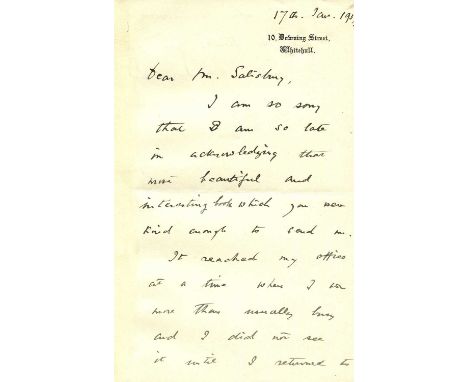 17th. Jan. 19
10, Downing Street,
Whitehall.
Dear Mr. Salisbury,
I am so sorry
that I am so late
in acknowledging that
most beautiful and
interesting book which you were
kind enough to send me.
It reached my office
at a time when I was
more than usually busy
and I did not see
it until I returned to